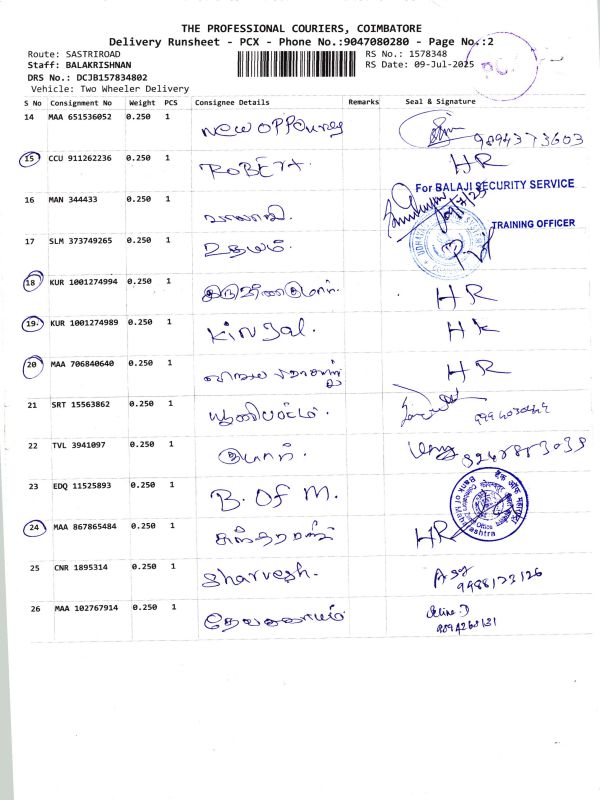 THE PROFESSIONAL COURIERS, COIMBATORE
Delivery Runsheet - PCX - Phone No.:9047080280 - Page No.:2
Route: SASTRIROAD RS No.: 1578348
Staff: BALAKRISHNAN RS Date: 09-Jul-2025
DRS No.: DCJB157834802
Vehicle: Two Wheeler Delivery
S No Consignment No Weight PCS Consignee Details Remarks Seal & Signature
14 MAA 651536052 0.250 1 9894373603
15 CCU 911262236 0.250 1 ROBERT. HR
For BALAJI SECURITY SERVICE
16 MAN 344433 0.250 1 பாலாஜி.
TRAINING OFFICER
17 SLM 373749265 0.250 1 உதயம்.
18 KUR 1001274994 0.250 1 HR
19. KUR 1001274989 0.250 1 Kinjal. HR
20 MAA 706840640 0.250 1 HR
21 SRT 15563862 0.250 1
22 TVL 3941097 0.250 1 குமார்.
23 EDQ 11525893 0.250 1 B. OF M.
Bank of Maharashtra
24 MAA 867865484 0.250 1 HR
25 CNR 1895314 0.250 1 Sharvesh.
9988123126
26 MAA 102767914 0.250 1